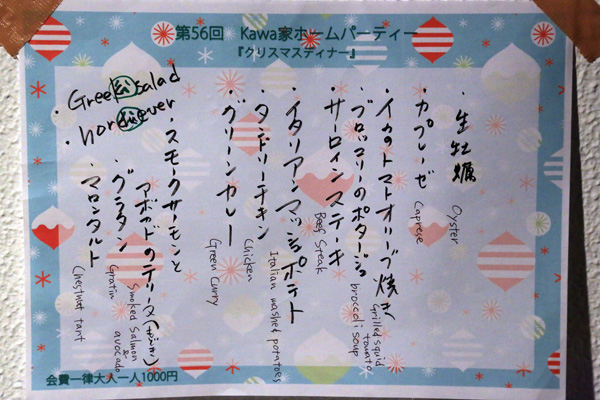 第56回 Kawa家ホームパーティー
『クリスマスディナー』
・生牡蠣
Oyster
・カプレーゼ
Caprese
・イカのトマトオリーブ焼き
Grilled squid tomato
・ブロッコリのポタージュ
broccoli soup
・サーロインステーキ
Beef Steak
・イタリアンマッシュポテト
Italian mashed potatoes
・タンドリーチキン
Chicken
・グリーンカレー
Green Curry
・スモークサーモンと
アボカドのテリーヌ
Smoked Salmon & avocado
・グラタン
Gratin
・マロンタルト
Chestnut tart
・Greek salad
・hor
ever
会費一律大人一人1000円